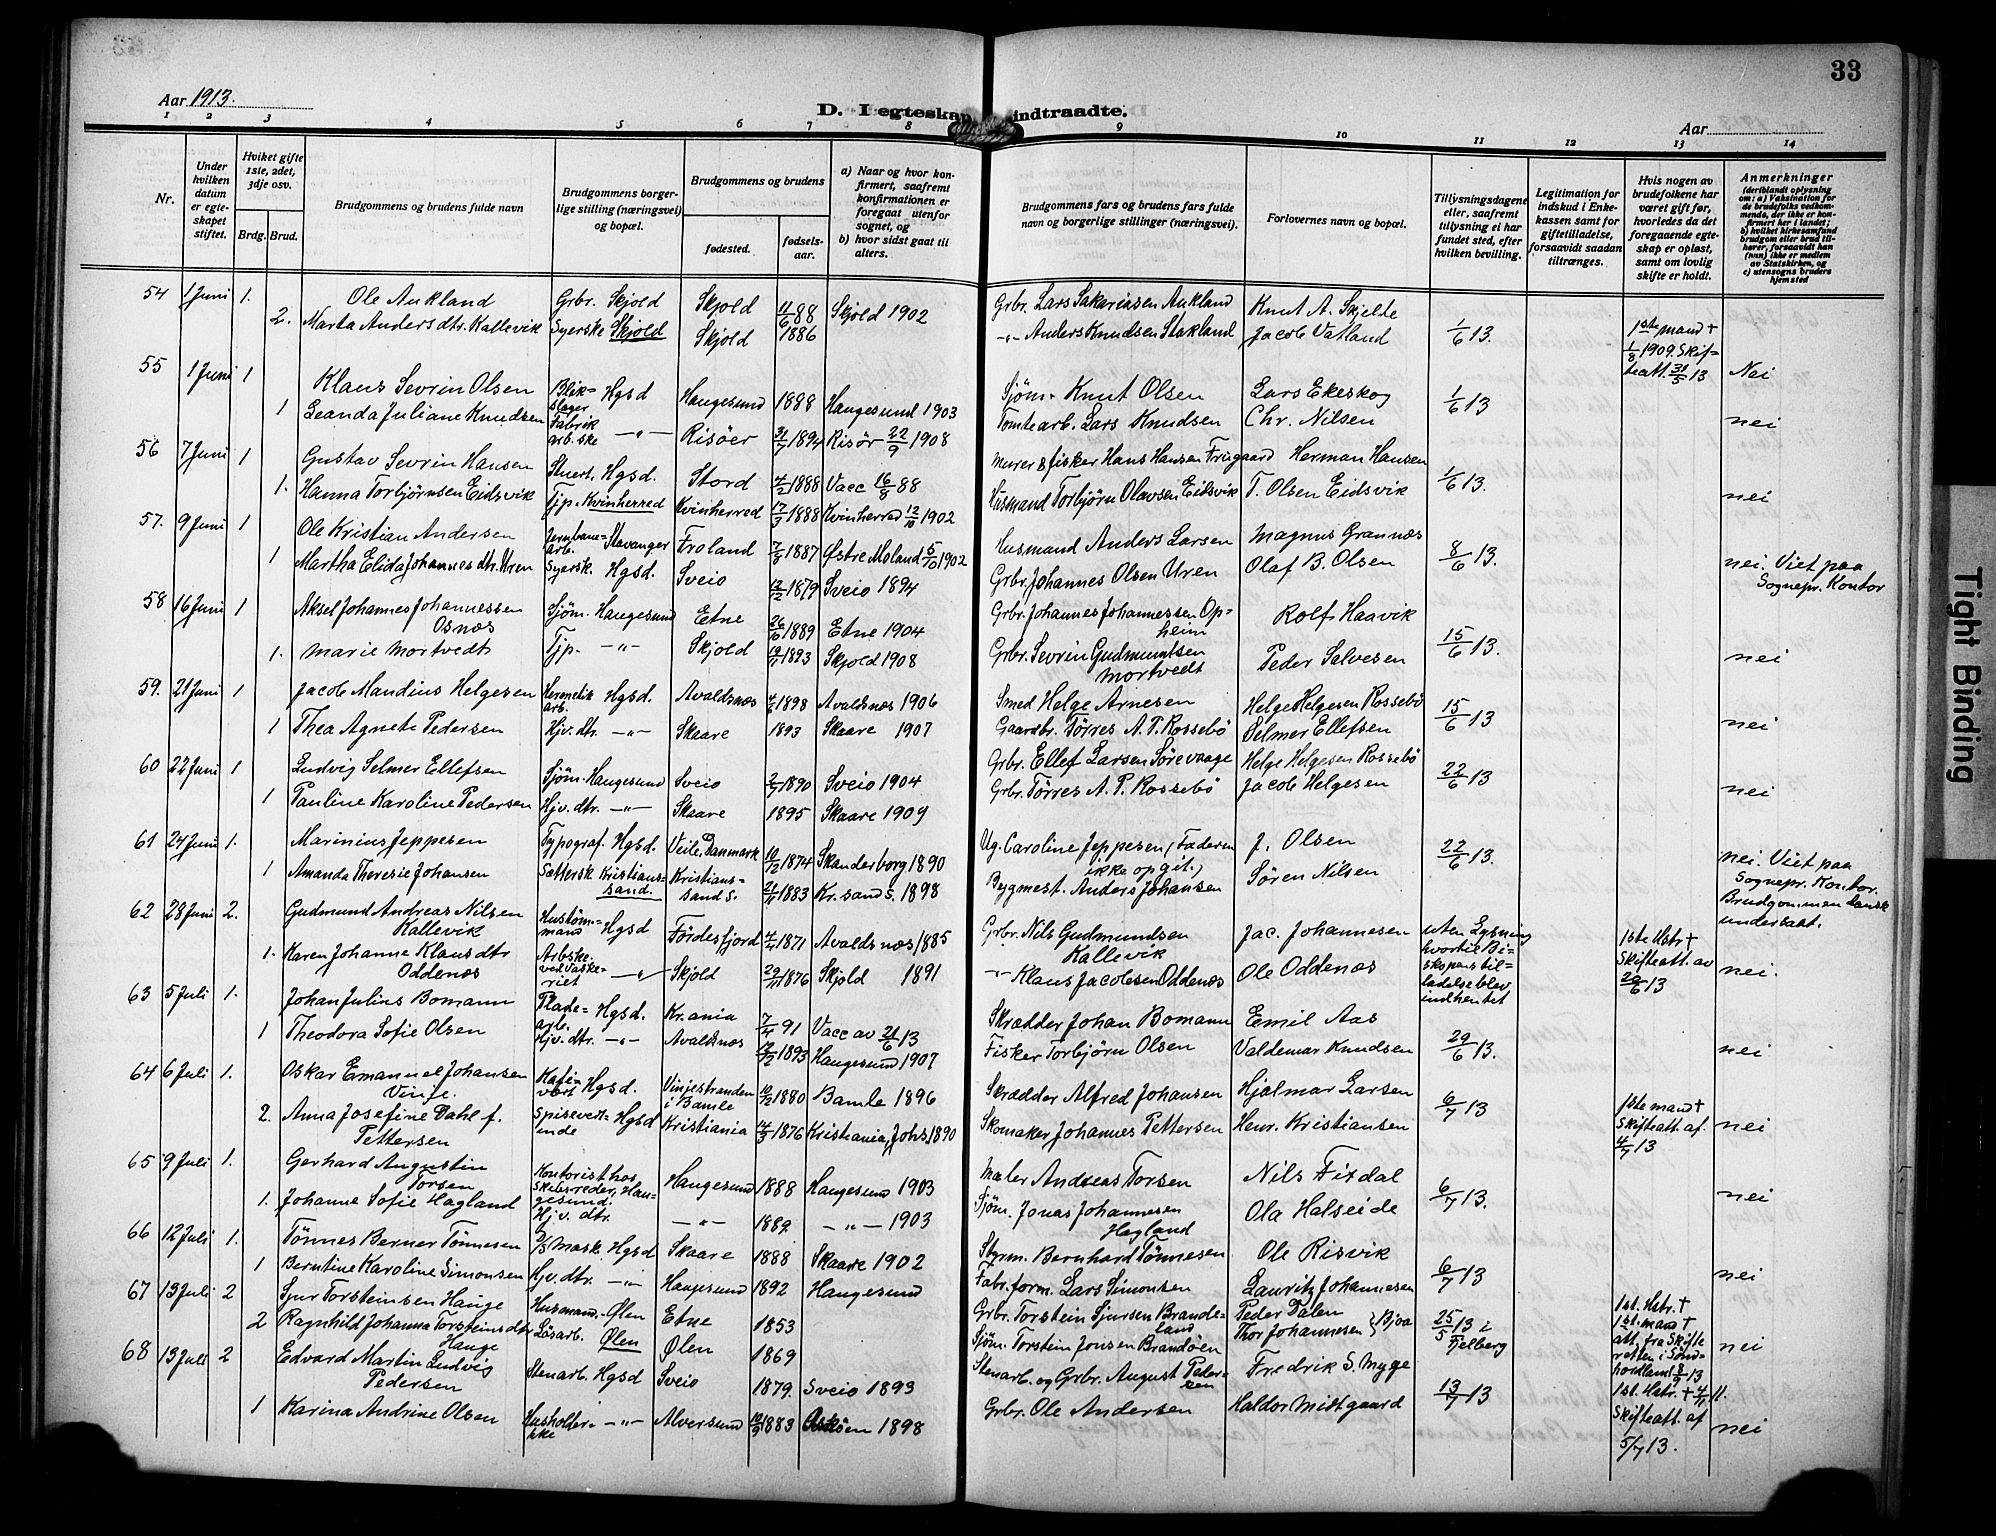 33
Aar 1913.
D. I egteskap indtraadte.
Aar
1 2 3 4 5 6 7 8 9 10 11 12 13 14
Nr.
Under hvilken datum er egteskapet stiftet.
Hviket gifte 1ste, 2det, 3dje osv.
Brdg. Brud.
Brudgommens og brudens fulde navn
Brudgommens borgerlige stilling (næringsvei) og bopæl.
Brudgommens og brudens
fødested.
fødselsaar.
a) Naar og hvor konfirmert, saafremt konfirmationen er foregaat utenfor sognet, og
b) hvor sidst gaat til alters.
Brudgommens fars og brudens fars fulde navn og borgerlige stillinger (næringsvei).
Forlovernes navn og bopæl.
Tillysningsdagene eller, saafremt tillysning ei har fundet sted, efter hvilken bevilling.
Legitimation for indskud i Enkekassen samt for giftetilladelse, forsaavidt saadan tiltrænges.
Hvis nogen av brudefolkene har været gift før, hvorledes da det foregaaende egteskap er opløst, samt om lovlig skifte er holdt.
Anmerkninger (deriblandt oplysning om: a) Vaksination for de brudefolks vedkommende, der ikke er konfirmert her i landet; b) hvilket kirkesamfund brudgom eller brud tilhører, forsaavidt han (hun) ikke er medlem av Statskirken, og c) utensogns bruders hjemsted
54 1 Juni 1. Ole Aukland Grbr. Skjold Skjold 11/6 88 Skjold 1902 Grbr. Lars Sakariasen Aukland Knut A. Skjelde
2. Marta Andersdtr. Kallevik Syerske Skjold Skjold 1886 -"- Anders Knudsen Stakland Jacob Vatland 1/6 13. 1ste mand † 1/8 1909. Skifteatt. 31/5 13 Nei
55 1 Juni 1 Klaus Sevrin Olsen Blikslager Hgsd Haugesund 1888 Haugesund 1903 Sjøm. Knut Olsen Lars Ekeskog 1/6 13
1 Leanda Juliane Knudsen Fabrik arb.ske -"- Risöer 31/7 1894 Risør 22/9 1908 Tomtearb. Lars Knudsen Chr. Nilsen nei
56 7 Juni 1 Gustav Sevrin Hansen Stuert. Hgsd. Stord 4/2 1888 Vacc 16/8 88 Murer & fisker Hans Hansen Frugaard Herman Hansen 1/6 13.
1. Hanna Torbjørnsen Eidsvik Tjp. Kvinherred Kvinherred 17/3 1888 Kvinherred 12/10 1902 Husmand Torbjørn Olavsen Eidsvik T. Olsen Eidsvik nei
57. 9 Juni 1 Ole Kristian Andersen Jernbanearb. Stavanger Froland 7/9 1887 Østre Moland 5/10 1902 Husmand Anders Larsen Magnus Grannæs 8/6 13.
1 Martha Elida Johannesdtr. Uren Syersk. Hgsd. Sveio 12/2 1879 Sveio 1894 Grbr. Johannes Olsen Uren Olaf B. Olsen nei. Viet paa Sognepr. Kontor
58 16 Juni 1 Aksel Johannes Johannessen Osnæs Sjøm. Haugesund Etne 26/10 1889 Etne 1904 Grbr. Johannes Johannessen Opheim Rolf Haavik 15/6 13.
1. Marie Mortvedt Tjp. -"- Skjold 19/11 1893 Skjold 1908 Grbr. Sevrin Gudmundsen Mortvedt Peder Salvesen nei
59. 21 Juni 1 Jacob Mandius Helgesen Hermetik arb. Hgsd. Avaldsnæs 4/6 1898 Avaldsnæs 1906 Smed Helge Arnesen Helge Helgesen Rossebö 15/6 13
1 Thea Agnete Pedersen Hjv. dtr. -"- Skaare 1893 Skaare 1907 Gaardbr. Tørres A. P. Rossebö Selmer Ellefsen nei
60 22 Juni 1 Ludvig Selmer Ellefsen Sjøm. Haugesund Sveio 2/7 1890 Sveio 1904 Grbr. Ellef Larsen Sørevaage Helge Helgesen Rossebö 22/6 13
1 Pauline Karoline Pedersen Hjv. dtr. -"- Skaare 1895 Skaare 1909 Grbr. Tørres A. P. Rossebö Jacob Helgesen nei
61 24 Juni 1. Marinius Jeppesen Typograf. Hgsd. Veile, Danmark 10/2 1874 Skanderborg 1890 Ug. Caroline Jeppesen, (Faderen ikke opgit.) J. Olsen 22/6 13.
1 Amanda Theresie Johansen Sættersk Kristianssand. Kristianssand S. 21/11 1883 Kr.sand S. 1898 Bygmest. Anders Johansen Søren Nilsen nei. Viet paa Sognepr. Kontor. Brudgommen dansk undersaat.
62 28 Juni 2. Gudmund Andreas Nilsen Kallevik Hustømmand Hgsd Fördesfjord 4/4 1871 Avaldsnæs 1885 Grbr. Nils Gudmundsen Kallevik Jac. Johannesen uten Lysning hvortil Biskopens tilladelse blev indhentet 1ste Hstr † Skifteatt. av 20/6 13
1. Karen Johanne Klausdtr Oddenæs Arbske. ved Vaskeriet -"- Skjold 29/11 1876 Skjold 1891 -"- Klaus Jacobsen Oddenæs Ole Oddenæs nei.
63 5 Juli 1. Johan Julius Bomann Pladearb. Hgsd. Kr.ania 7/4 91 Vacc av 21/6 13 Skrædder Johan Bomann Emil Aas 29/6 13.
1 Theodora Sofie Olsen Hjv. dtr. -"- Avaldsnæs 12/2 1893 Haugesund 1907 Fisker Torbjørn Olsen Valdemar Knudsen nei
64 6 Juli 1. Oskar Emanuel Johansen Vinje. Kafevert Hgsd. Vinjestranden i Bamle 10/2 1880 Bamle 1896 Skrædder Alfred Johansen Hjalmar Larsen 6/7 13 1ste mand † Skifteatt. af 4/7 13
2. Anna Josefine Dahl f. Pettersen Spisevertinde Hgsd Kristiania 14/3 1876 Kristiania, Johs 1890 Skomaker Johannes Pettersen Henr. Kristiansen nei
65 9 Juli 1. Gerhard Augustin Torsen Kontorist hos Skibsreder, Haugesund. Haugesund 1888 Haugesund 1903 Maler Andreas Torsen Nils Fitdal 6/7 13.
1. Johanne Sofie Hagland Hjv. dtr. -"- 1889 -"- 1903 Sjøm. Jonas Johannesen Hagland Ola Halseide nei
66 12 Juli 1. Tönnes Berner Tönnesen Mask. Hgsd Skaare 1888 Skaare 1902 Styrm. Bernhard Tönnesen Ole Risvik 6/7 13
1 Berntine Karoline Simonsen Hjv. dtr. -"- Haugesund 1892 Haugesund Fabr. form. Lars Simonsen Lauritz Johannesen nei
67 13 Juli 2 Sjur Torsteinsen Hauge Husmand. Ølen Etne 1853 Grbr. Torstein Sjursen Brandeland Peder Dalen } Bjoa 25/5 13 i Fjelberg 1st. Hstr. † 1st. mand † att. fra Skifteretten i Söndhordland 8/9 13
2 Ragnhild Johanna Torsteinsdtr Hauge Løsarb. Ølen Ølen 1869 Sjøm. Torstein Jonsen Brandøen Thor Johannesen nei
68 13 Juli 2 Edvard Martin Ludvig Pedersen Stenarb. Hgsd Sveio 1879. Sveio 1893 Stenarb. og Grbr. August Pedersen Fredrik S. Myge 13/7 13 1st. Hstr. † 4/11 11. Skifteatt. af 5/7 13.
1 Karina Andrine Olsen Husholderske -"- Alversund 10/9 1883 Askøen 1898 Grbr. Ole Andersen Haldor Midtgaard nei
Tight Binding